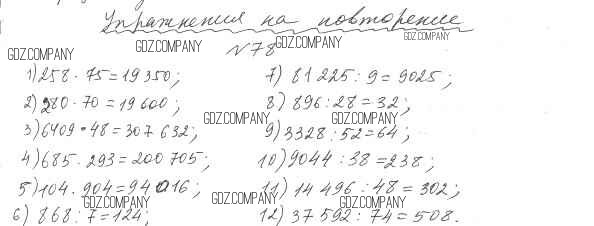 Упражнения на повторение
GDZ.COMPANY
GDZ.COMPANY
GDZ.COMPANY
GDZ.COMPANY
№78
1) 258 · 75 = 19 350;
2) 280 · 70 = 19 600;
3) 6409 · 48 = 307 632;
4) 685 · 293 = 200 705;
5) 104 · 904 = 94 016;
6) 868 : 7 = 124;
7) 81 225 : 9 = 9025;
8) 896 : 28 = 32;
9) 3328 : 52 = 64;
10) 9044 : 38 = 238;
11) 14 496 : 48 = 302;
12) 37 592 : 74 = 508.
GDZ.COMPANY
GDZ.COMPANY
GDZ.COMPANY
GDZ.COMPANY
GDZ.COMPANY